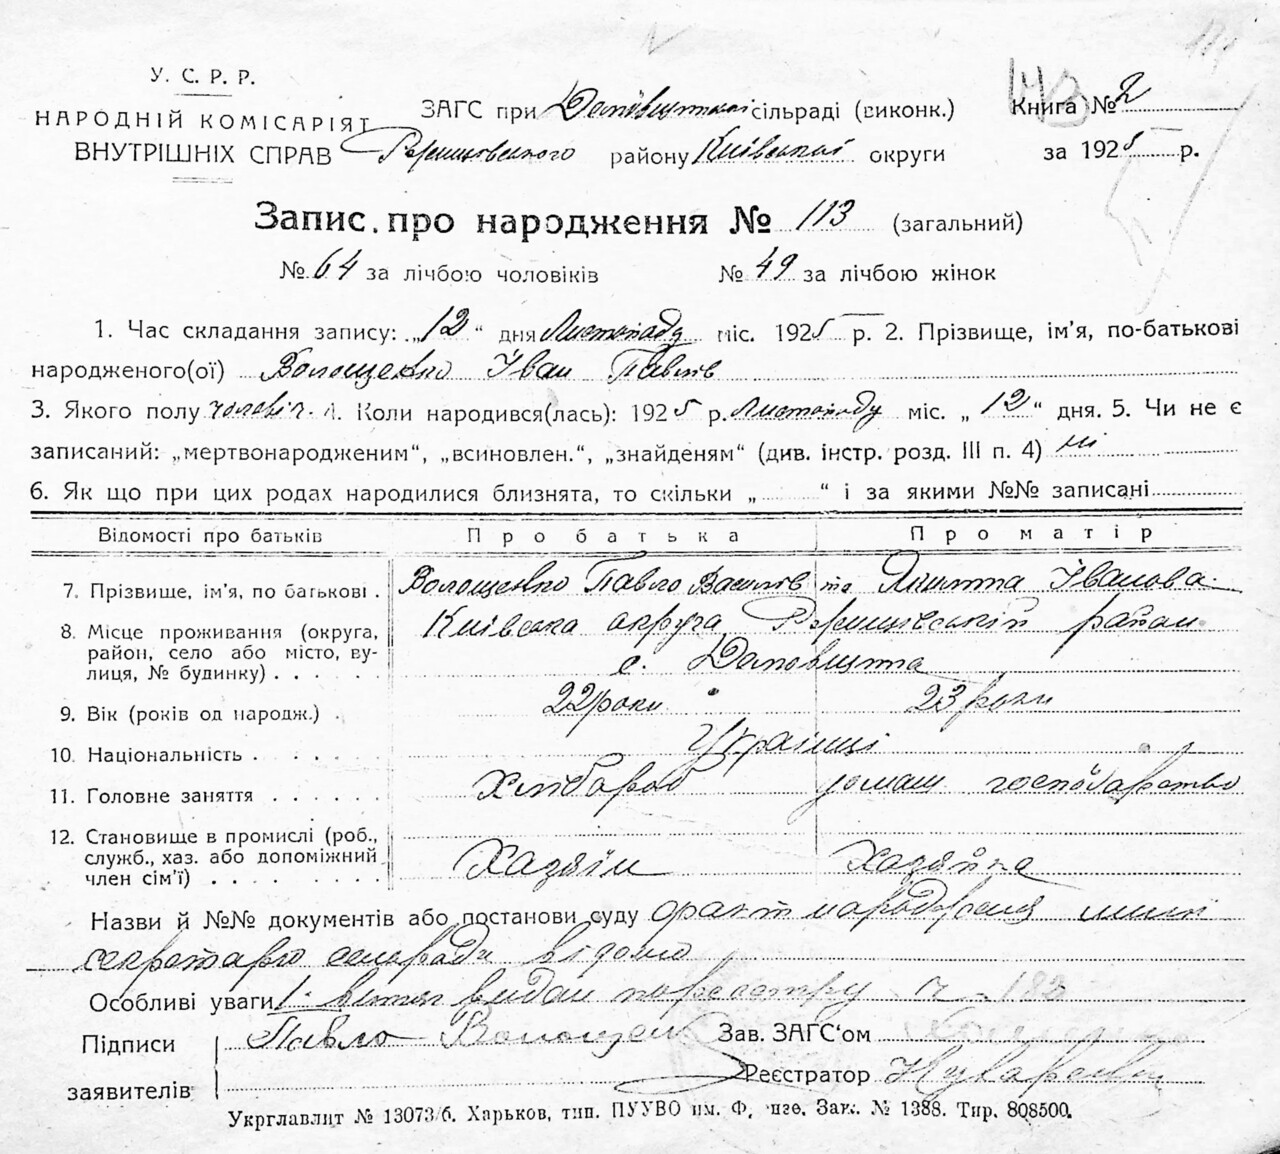 У. С. Р. Р.
НАРОДНІЙ КОМІСАРІЯТ
ВНУТРІШНІХ СПРАВ
ЗАГС при сільраді (виконк.)
району Київської округи
113
Книга № 2
за 1925 р.
Запис про народження № 113 (загальний)
№ 64 за лічбою чоловіків № 49 за лічбою жінок
1. Час складання запису: „12“ дня Листопаду міс. 1925 р. 2. Прізвище, ім'я, по-батькові
народженого(ої) Волощенко Іван Павлів
3. Якого полу чоловіч. 4. Коли народився(лась): 1925 р. Листопаду міс. „12“ дня. 5. Чи не є
записаний: „мертвонародженим“, „всиновлен.“, „знайденям“ (див. інстр. розд. III п. 4) ні
6. Як що при цих родах народилися близнята, то скільки „ “ і за якими №№ записані
Відомості про батьків Про батька Про матір
7. Прізвище, ім'я, по батькові . Волощенко Павло Василів та Ивановa
8. Місце проживання (округа, район, село або місто, вулиця, № будинку) Київська округа район
с.
9. Вік (років од народж.) . 22 роки 23 роки
10. Національність Українці
11. Головне заняття Хлібороб домаш господарство
12. Становище в промислі (роб.,
служб., хаз. або допоміжний
член сім'ї) Хазяїн Хазяйка
Назви й №№ документів або постанови суду факт народження мині
секретарю сельради відомо
Особливі уваги 1. витяг видан по реєстру ч. 182
Підписи
заявителів
Павло Волощен
Зав. ЗАГС'ом
Реєстратор
Укрглавлит № 13073/б. Харьков, тип. ПУУВО им. Ф. Зак. № 1388. Тир. 808500.